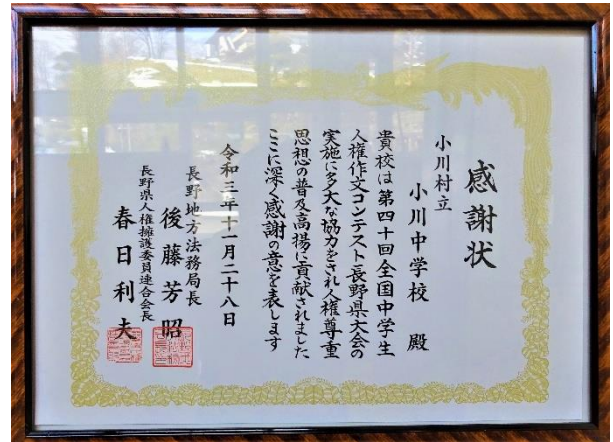 感謝状
小川村立
小川中学校 殿
貴校は第四十回全国中学生
人権作文コンテスト長野県大会の
実施に多大な協力をされ人権尊重
思想の普及高揚に貢献されました
ここに深く感謝の意を表します
令和三年十一月二十八日
長野地方法務局長
後藤芳昭
長野県人権擁護委員連合会長
春日利夫